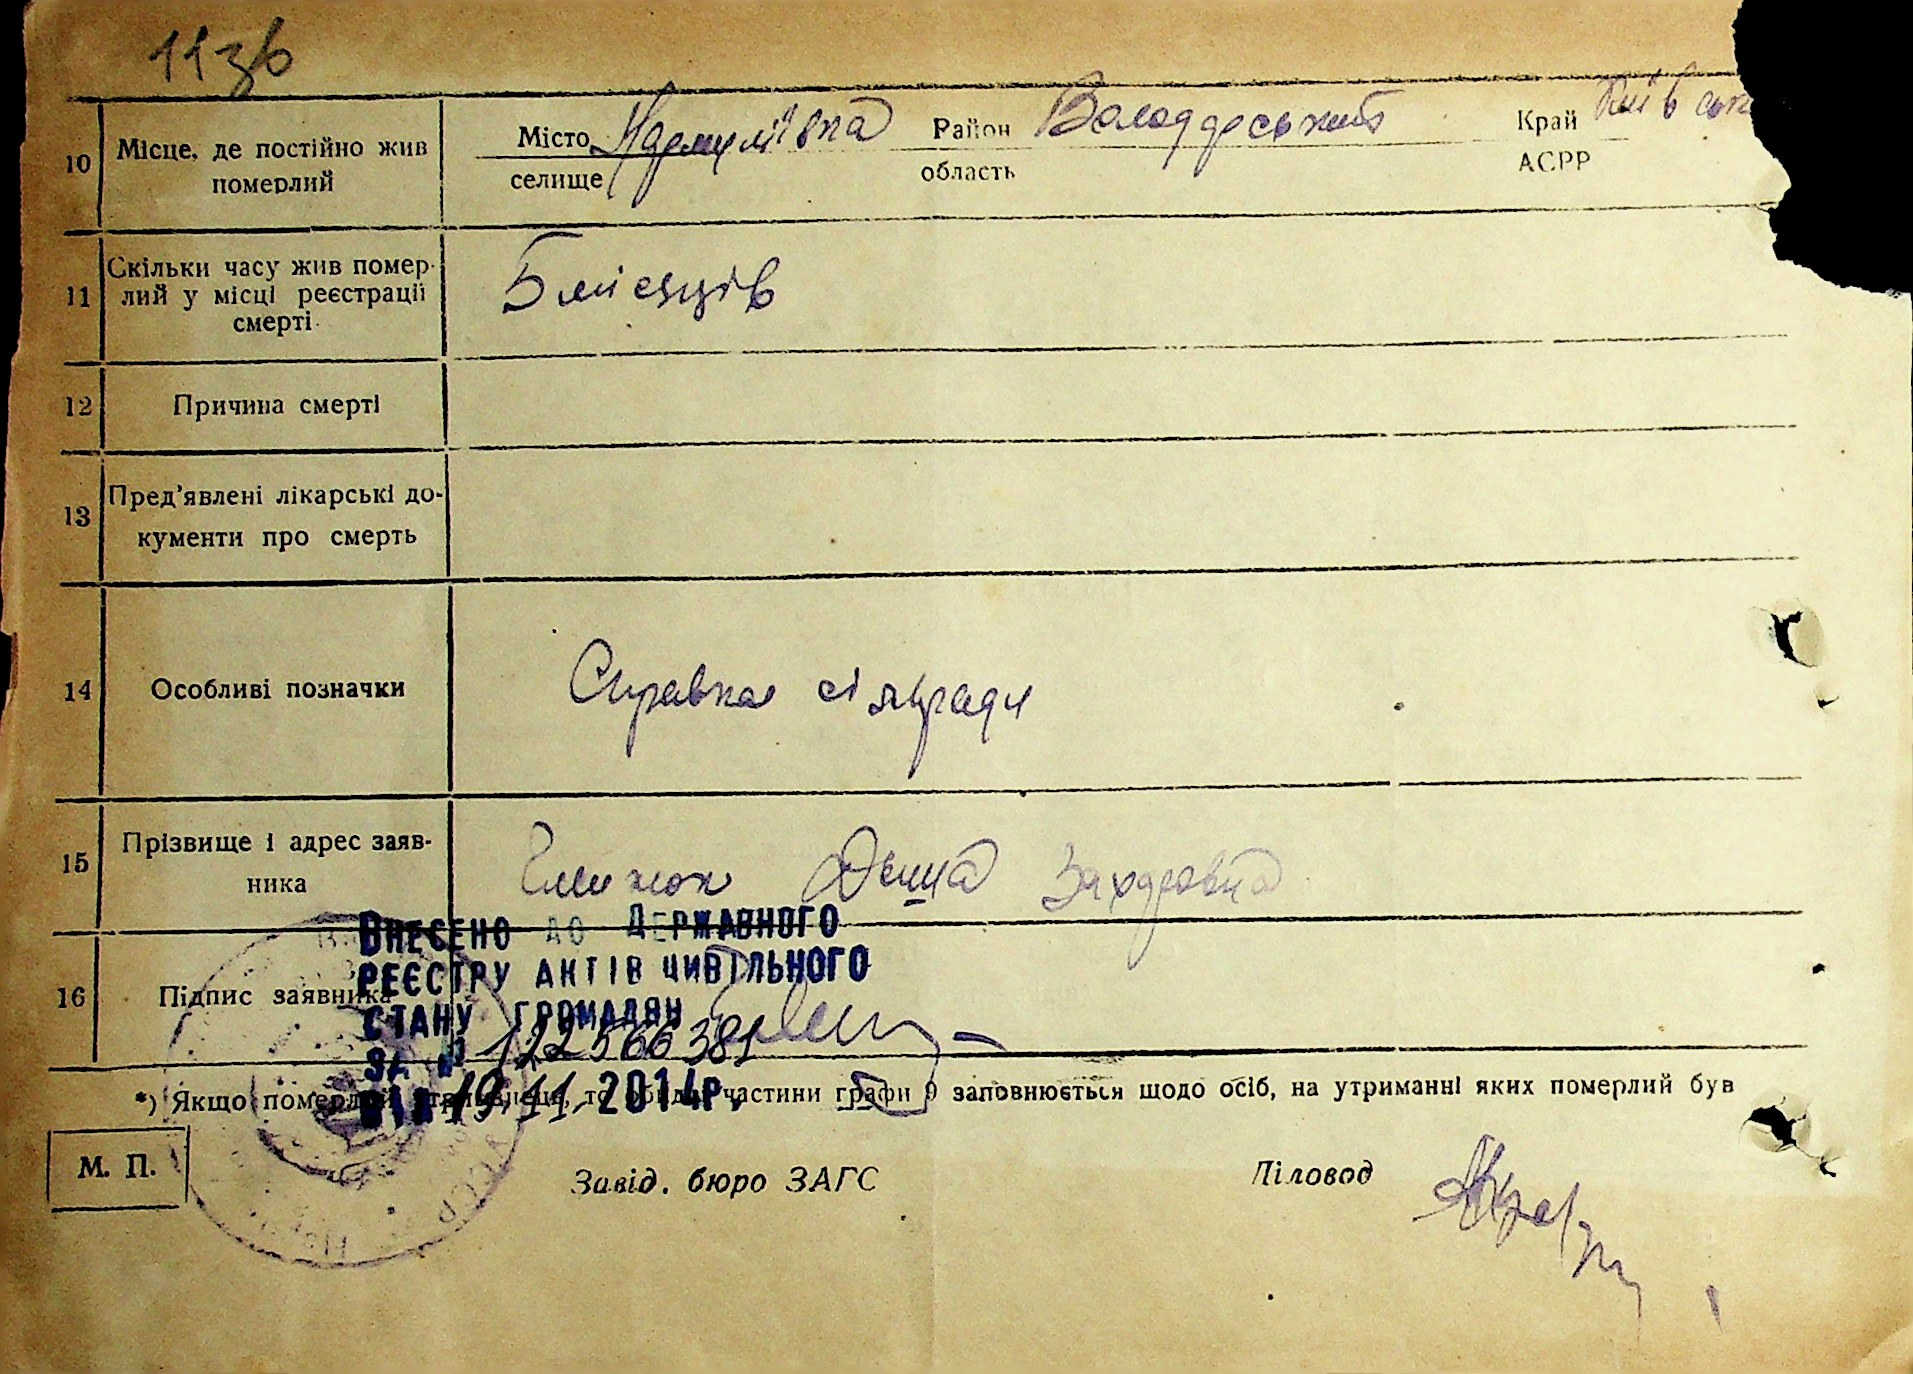 113в
10 Місце, де постійно жив померлий
Місто селище Район область Володарський Край АСРР Київськ
11 Скільки часу жив померлий у місці реєстрації смерті
5 місяців
12 Причина смерті
13 Пред'явлені лікарські документи про смерть
14 Особливі позначки
Справка сільради
15 Прізвище і адрес заявника
16 Підпис заявника
Внесено до Державного
реєстру актів цивільного
стану громадян
за № 122566381
від 19.11.2014р.
*) Якщо померлий утриманець, то обидві частини графи 9 заповнюється щодо осіб, на утриманні яких померлий був
М. П.
Завід. бюро ЗАГС
Діловод
УССР